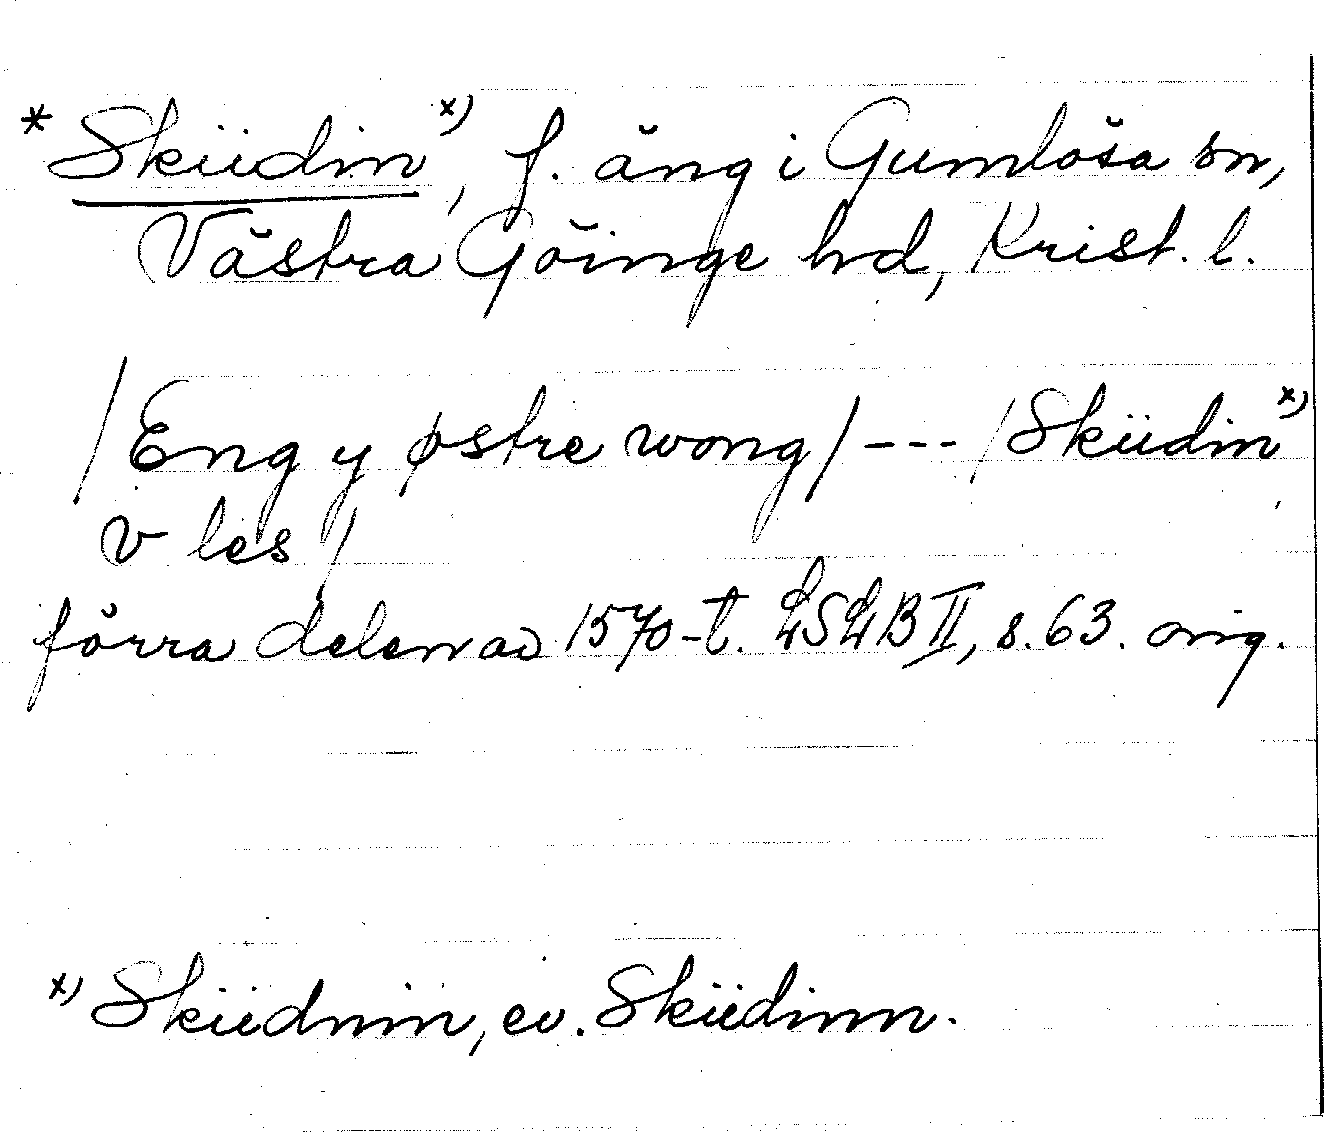 * Skiidin x), f. äng i Gumlösa sn,
Västra Göinge hd, Krist. l.
/Eng y østre wong/ --- /Skiidin x)
v les/
förra delen av 1570-t. LSLB II, s. 63. orig.
x) Skiidnin, ev. Skiidinn.